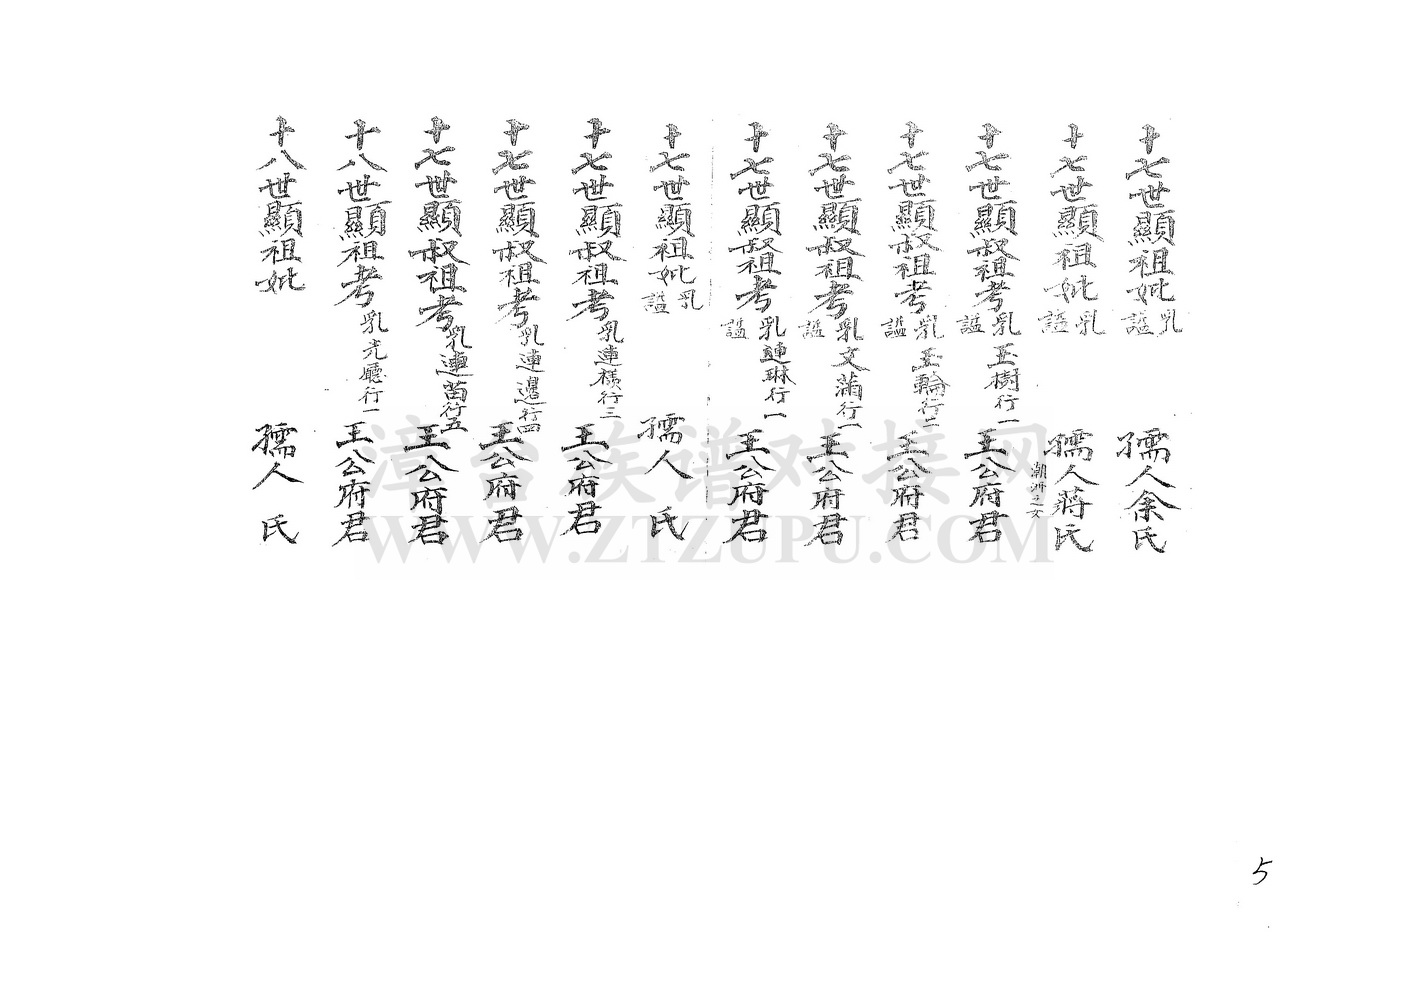 十七世顯祖妣乳謚 孺人余氏
十七世顯祖妣乳謚 孺人蔣氏
潮州之女
十七世顯叔祖考乳玉樹行一謚 王公府君
十七世顯叔祖考乳玉輪行二謚 王公府君
十七世顯叔祖考乳文蒲行一謚 王公府君
十七世顯叔祖考乳璉琳行一謚 王公府君
十七世顯祖妣乳謚 孺人 氏
十七世顯叔祖考乳連行三 王公府君
十七世顯叔祖考乳連邊行四 王公府君
十七世顯叔祖考乳連苗行五 王公府君
十八世顯祖考乳光廳行一 王公府君
十八世顯祖妣 孺人 氏
漳台族谱对接网
WWW.ZTZUPU.COM
5